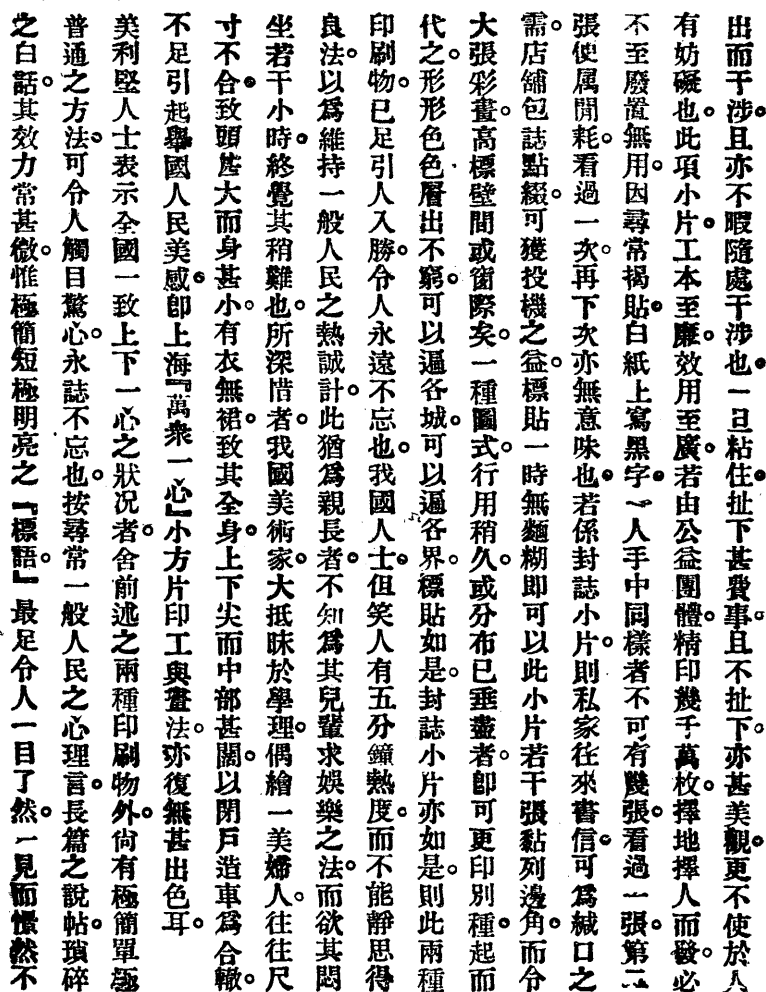 出而干涉。且亦不暇隨處干涉也。一旦粘住。扯下甚費事。且不扯下。亦甚美觀。更不使於人
有妨礙也。此項小片。工本至廉。效用至廣。若由公益團體。精印幾千萬枚。擇地擇人而發。必
不至廢置無用。因尋常揭貼。白紙上寫黑字。一人手中同樣者不可有幾張。看過一張。第二
張便屬閒耗。看過一次。再下次亦無意味也。若係封誌小片。則私家往來書信。可爲緘口之
需。店舖包誌點綴。可獲投機之益。標貼一時無麵糊。即可以此小片若干張。黏列邊角。而令
大張彩畫。高標壁間或窗際矣。一種圖式。行用稍久。或分布已垂盡者。卽可更印別種。起而
代之。形形色色。層出不窮。可以遍各城。可以遍各界。標貼如是。封誌小片亦如是。則此兩種
印刷物。已足引人入勝。令人永遠不忘也。我國人士。但笑人有五分鐘熱度。而不能靜思得
良法。以爲維持一般人民之熱誠計。此猶爲親長者。不知爲其兒輩求娛樂之法。而欲其悶
坐若干小時。終覺其稍難也。所深惜者。我國美術家。大抵昧於學理。偶繪一美婦人。往往尺
寸不合。致頭甚大而身甚小。有衣無裙。致其全身上下尖而中部甚闊。以閉戶造車爲合轍。
不足引起舉國人民美感。卽上海『萬衆一心』小方片印工與畫法。亦復無甚出色耳。
美利堅人士表示全國一致上下一心之狀况者。舍前述之兩種印刷物外。尙有極簡單極
普通之方法。可令人觸目驚心。永誌不忘也。按尋常一般人民之心理言。長篇之說帖。瑣碎
之白話。其效力常甚微。惟極簡短極明亮之『標語』。最足令人一目了然。一見而憬然不